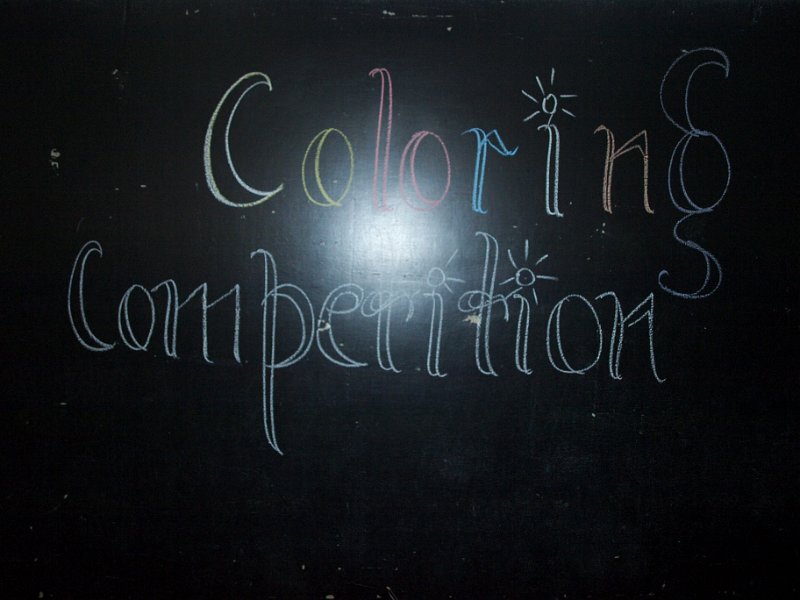 Coloring
Competition